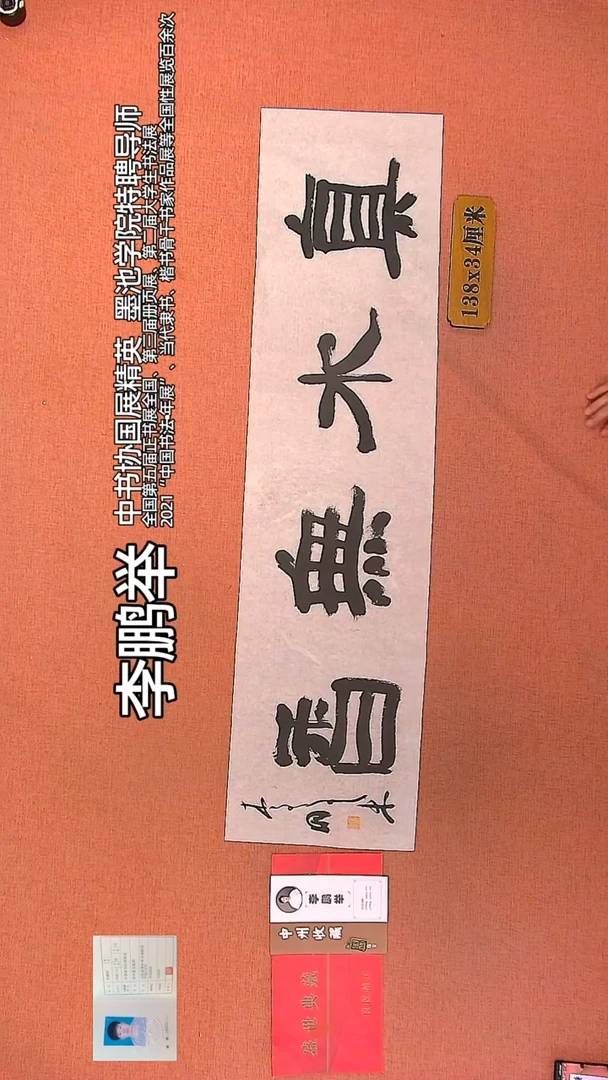 李鹏举
中书协国展精英 墨池学院特聘导师
全国第五届正书展全国、第三届册页展、第二届大学生书法展
2021“中国书法·年展”、当代隶书、楷书骨干书家作品展等全国性展览百余次
真水無香
138x34厘米
李鹏举
中州收藏
盛世典藏